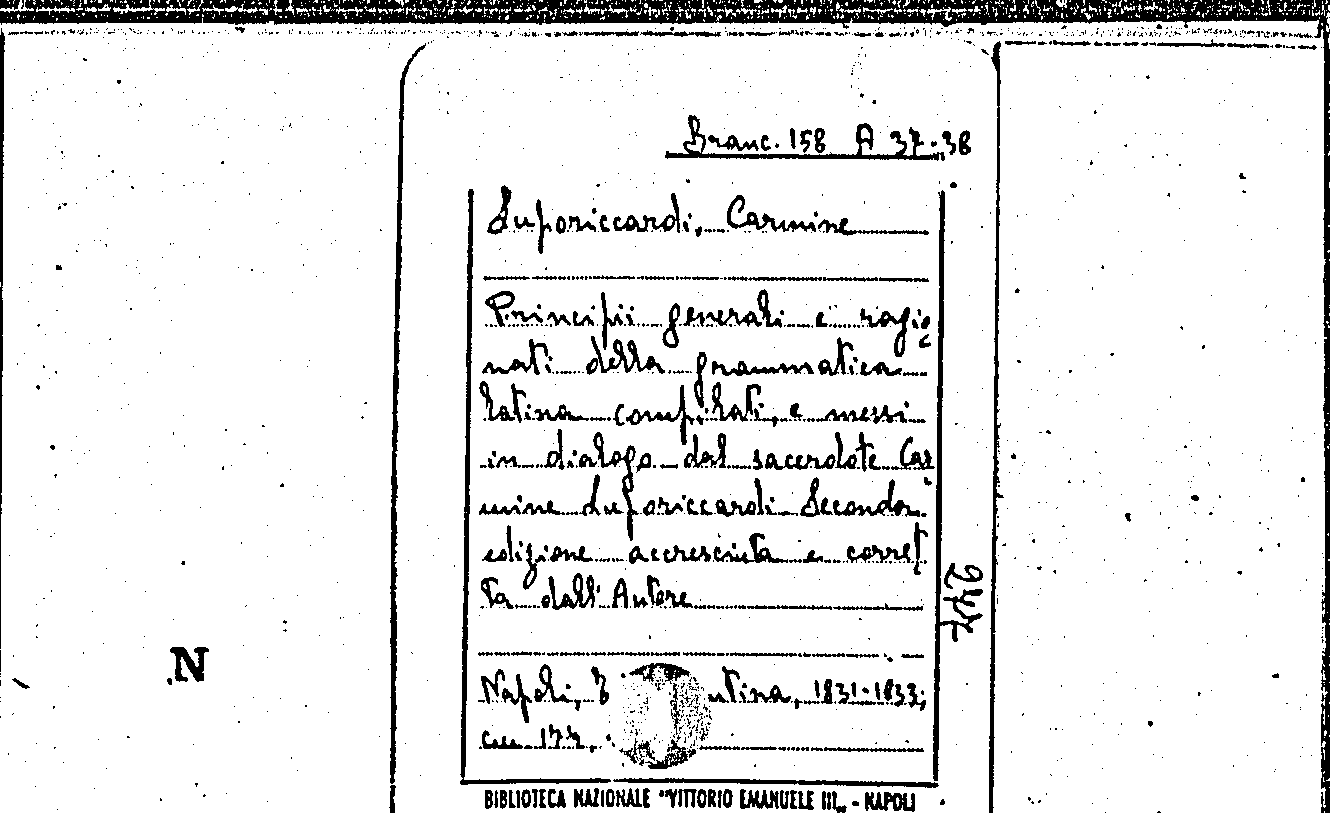 Branc. 158 A 37-38
Luporiccardi, Carmine
Principii generali e ragio
nati della grammatica
latina compilati, e messi
in dialogo dal sacerdote Car
mine Luporiccardi. Seconda
edizione accresciuta e corret
ta dall'Autore
247
Napoli, utina, 1831-1833;
cm. 17½.
N
BIBLIOTECA NAZIONALE "VITTORIO EMANUELE III„ - NAPOLI